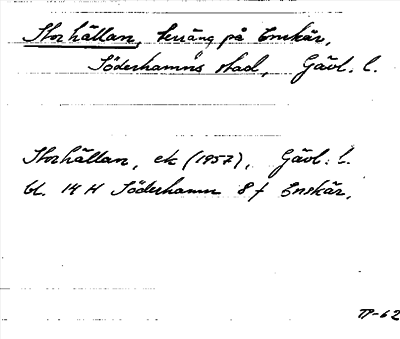 Storhällan, terräng på Enskär,
Söderhamns stad, Gävl. l.
Storhällan, ek (1957), Gävl. l.
bl. 14 H Söderhamn 8 f Enskär.
TP-62